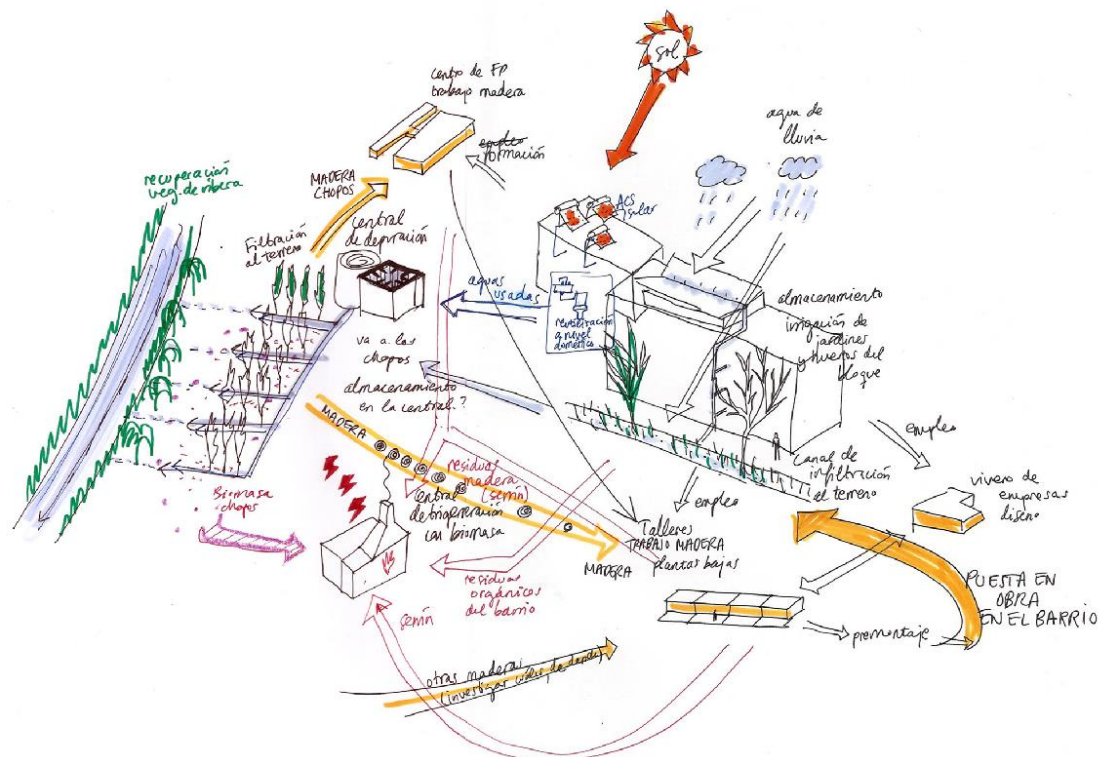 sol
centro de FP
trabajo madera
empleo
formación
agua de
lluvia
recuperación
veg. de ribera
MADERA
CHOPOS
ACS
solar
Filtración
al terreno
central
de depuración
aguas
usadas
reutilización
a nivel
doméstico
almacenamiento
irrigación de
jardines
y huertos del
bloque
va a los
chopos
almacenamiento
en la central.?
MADERA
residuos
madera
(serrín)
central
de trigeneración
con biomasa
empleo
Canal de
infiltración
al terreno
empleo
vivero de
empresas
diseño
Biomasa
chopos
Talleres
TRABAJO MADERA
plantas bajas
MADERA
residuos
orgánicos
del barrio
serrín
PUESTA EN
OBRA
EN EL BARRIO
premontaje
otras maderas
(investigar de donde)